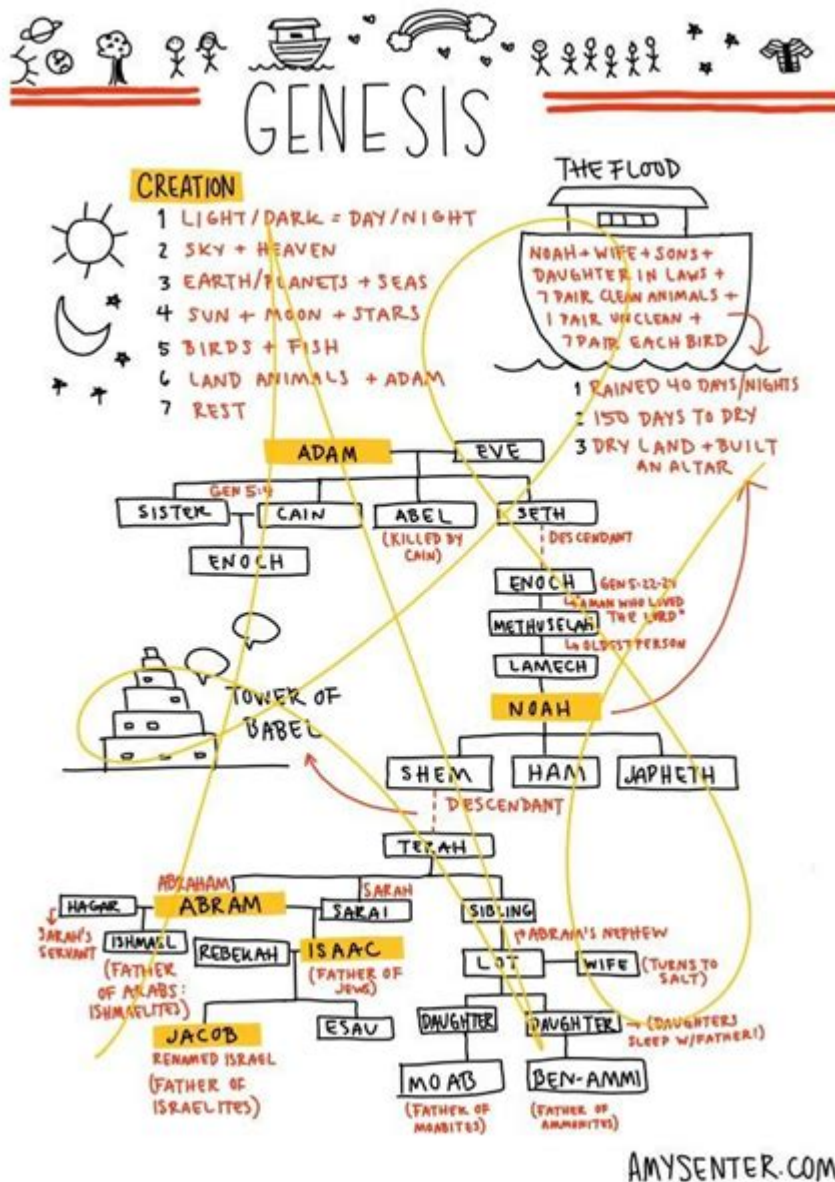 GENESIS
CREATION
1 LIGHT/DARK = DAY/NIGHT
2 SKY + HEAVEN
3 EARTH/PLANETS + SEAS
4 SUN + MOON + STARS
5 BIRDS + FISH
6 LAND ANIMALS + ADAM
7 REST
THE FLOOD
NOAH + WIFE + SONS +
DAUGHTER IN LAWS +
7 PAIR CLEAN ANIMALS +
1 PAIR UNCLEAN +
7 PAIR EACH BIRD
1 RAINED 40 DAYS/NIGHTS
2 150 DAYS TO DRY
3 DRY LAND + BUILT
AN ALTAR
ADAM
EVE
GEN 5:4
SISTER
CAIN
ABEL
(KILLED BY
CAIN)
SETH
ENOCH
DESCENDANT
ENOCH
GEN 5:22-24
"A MAN WHO LIVED
THE LORD"
METHUSELAH
OLDEST PERSON
LAMECH
NOAH
TOWER OF
BABEL
SHEM
HAM
JAPHETH
DESCENDANT
TERAH
ABRAHAM
SARAH
HAGAR
ABRAM
SARAI
SIBLING
SARAH'S
SERVANT
ISHMAEL
(FATHER
OF ARABS:
ISHMAELITES)
REBEKAH
ISAAC
(FATHER OF
JEWS)
ABRAM'S NEPHEW
LOT
WIFE
(TURNS TO
SALT)
JACOB
RENAMED ISRAEL
(FATHER OF
ISRAELITES)
ESAU
DAUGHTER
DAUGHTER
(DAUGHTERS
SLEEP W/FATHER!)
MOAB
(FATHER OF
MOABITES)
BEN-AMMI
(FATHER OF
AMMONITES)
AMYSENTER.COM